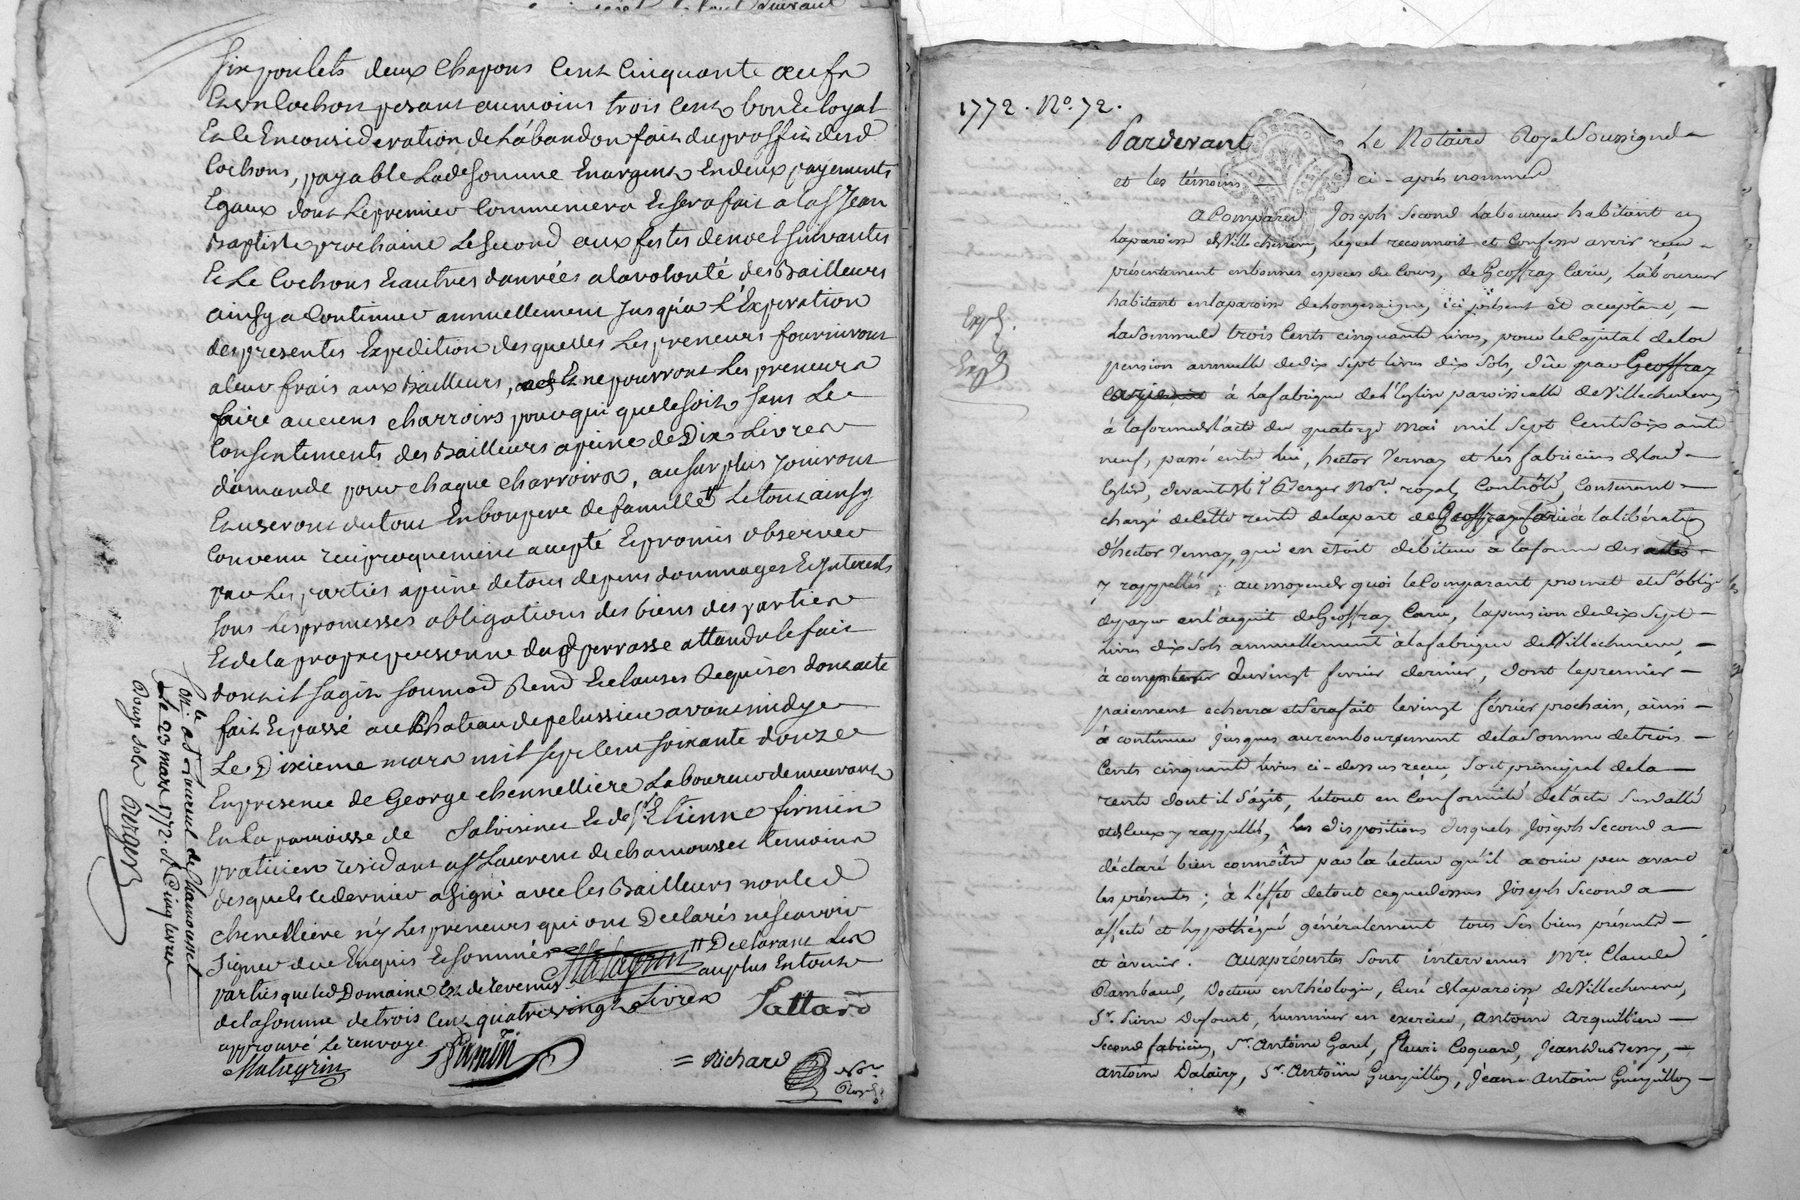 six poulets deux chapons cent cinquante œufs
Et un Cochon pesant au moins trois cent bon Et loyal
Et Ce En consideration de L'abandon fait du proffit desd
Cochons, payable Lade Somme En argent En deux payements
Egaux dont Le premier Commencera Et sera fait a la St Jean
Baptiste prochaine Le Second aux festes de noel suivantes
Et Le Cochons Et autres danrées a la volonté des Bailleurs
ainsy a Continuer annuellement Jusqu'a L'Experation
des presentes Expedition des quelles Les preneurs fourniront
a leur frais aux Bailleurs, Et ne pourront Les preneurs
faire aucuns charroirs pour qui que Ce soit sans Le
Consentements des Bailleurs a peine de Dix Livres
damande pour chaque charroirs, au surplus Jouiront
Et useront du tout En bon pere de famille tt Le tout ainsy
Convenu reciproquement accepté Et promis observer
par Les parties a peine de tous depens dommages Et Interests
sous Les promesses obligations des biens des parties
Et de la propre personne dud perrasse attandu le fait
dont il sagit soumod Rend Et clauses Requises dont acte
fait Et passé au Chateau de pelussieu avant midy
Le Dixieme mars mil sept cent soixante douze
En presence de George chenelliere Laboureur demeurant
En La parroisse de Salvisinet Et de Sr Etienne firmin
praticien residant a St Laurent de chamousset temoins
desquels Ce dernier a signé avec les Bailleurs non led
chenelliere n'y Les preneurs qui ont Declarés ne scavoir
signer de ce Enquis Et sommés Mategrin tt Declarant Les
parties que led Domaine Est de revenus au plus En toute
de la somme de trois Cent quatre vingt Livres
approuvé Le renvoye Firmin Pattard
Mategrin = Richard Nre Royal
Con: a St Laurent de Chamousset
le 23 mars 1772. R Cinq livres
Douze sols Burger
1772. No. 72.
Pardevant Le Notaire Royal Soussigné
et les témoins ci-après nommés
a Comparu Joseph Second Laboureur habitant en
la paroisse de Villechenève, lequel reconnoit et Confesse avoir reçu
présentement en bonnes espèces du Cours, de Geoffray Carie, Laboureur
habitant en la paroisse de Longessaigne, ici présent et acceptant,
Expd.
La Somme de trois Cents cinquante livres, pour le Capital de la
Expd
pension annuelle de dix sept livres dix Sols, düe par Geoffray
Carie à La fabrique de l'Eglise paroissialle de Villechenève
à la forme de l'acte du quatorze mai mil Sept Cent Soixante
neuf, passé entre lui, hector Vernay et Les fabriciens de lad
Eglise, devant Me Berger Nore. royal, Contrôlé, Contenant
chargé de Cette rente de la part de Geoffray Carie à la libération
d'hector Vernay, qui en etoit débiteur à la forme des actes
y rappellés; au moyen de quoi le Comparant promet et S'oblige
de payer en l'acquit de Geoffray Carie, la pension de dix Sept
livres dix Sols annuellement à la fabrique de Villechenève,
à compter du vingt fevrier dernier, dont le premier
paiement echerra et Sera fait le vingt février prochain, ainsi
à continuer Jusques au remboursement de la Somme de trois
Cents cinquante livres ci-dessus reçue, Soit principal de la
rente dont il S'agit, le tout en Conformité de l'acte Sus datté
et de Ceux y rappellés, Les dispositions desquels Joseph Second a
déclaré bien connoître par la lecture qu'il a ouie peu avant
les présentes; à l'effet de tout ce que dessus Joseph Second a
affecté et hypothéqué généralement tous Ses biens présents
et àvenir. aux présentes Sont intervenus Mre. Claude
Rambaud, Docteur en théologie, Curé de la paroisse de Villechenève,
Sr. Pierre Dufourt, luminier en exercice, Antoine Arquillière
Second fabricien, Sr. Antoine Garel, fleuri Coquard, Jean Dubessy,
Antoine Dalairy, Sr. Antoine Guerpillon, Jean-Antoine Guerpillon